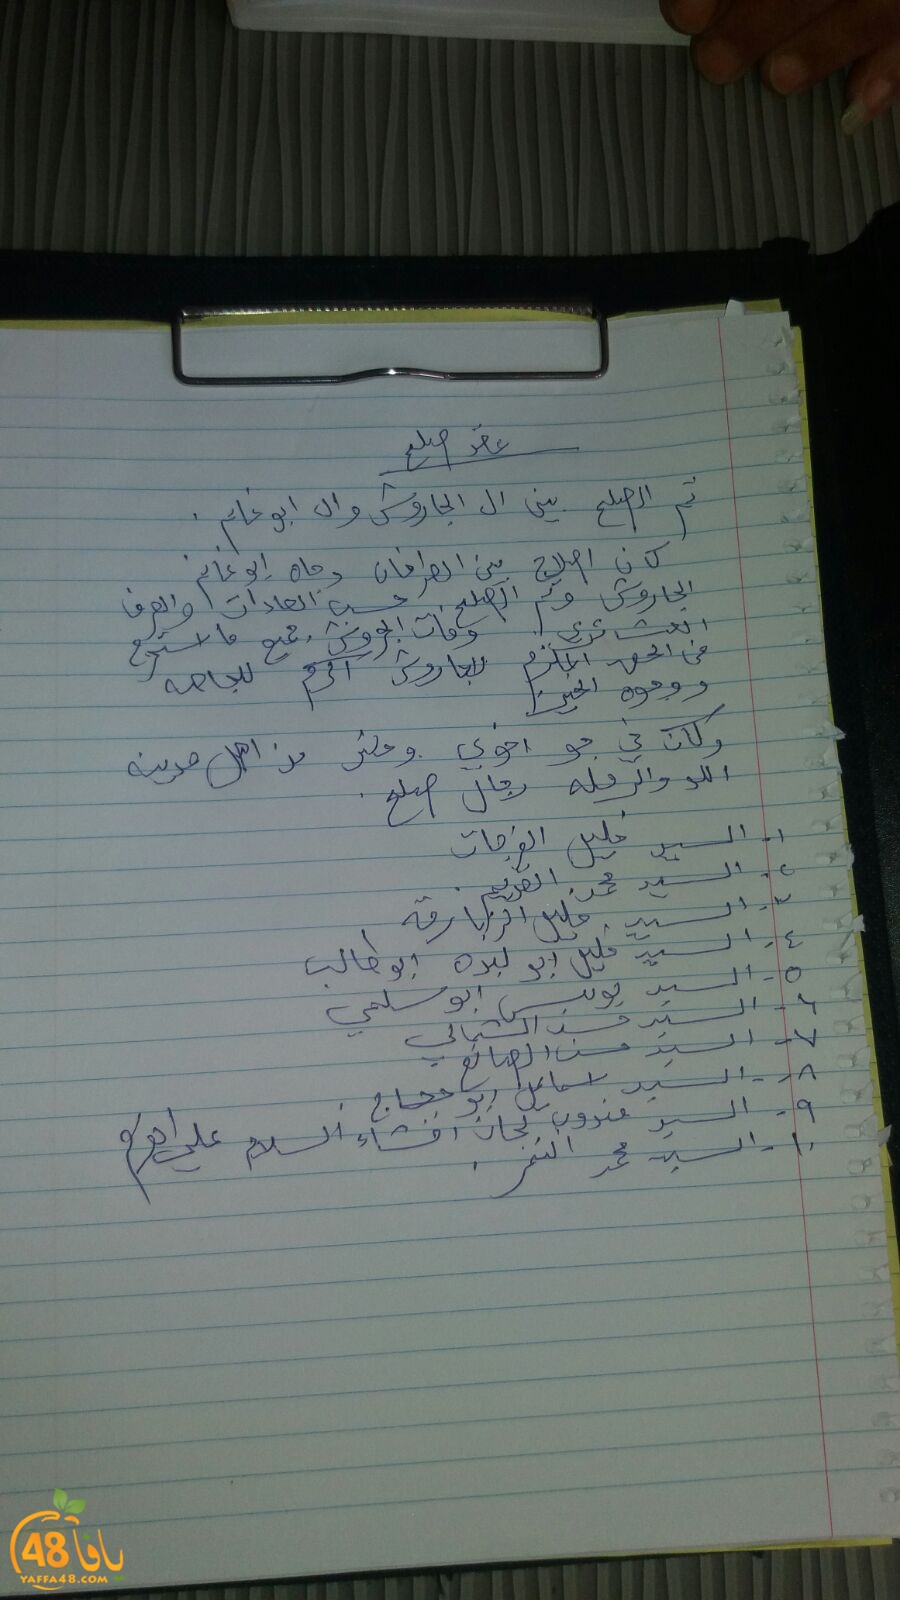 عقد صلح
تم الصلح بين ال الجاروش وال ابو غانم .
كان اصلاح بين الطرفان وجاه ابو غانم
الجاروش وتم الصلح حسب العادات والعرف
العشائري جميع ما
في الحق الملزم للجاروش اكرم للجاهه
ووجوه الخير
وكان في جو اخوي وحضر من اهل مدينه
اللد والرمله رجال صلح .
١- السيد خليل الفرجات
٢- السيد محمد
٣- السيد خليل الزبارقه
٤- السيد خليل ابو لبده ابو طالب
٥- السيد يونس ابو سلمي
٦- السيد حسن الشمالي
٧- السيد حسن الصانع
٨- السيد اسماعيل ابو حجاج
٩- السيد مندوب لجان افشاء السلام علي
١٠- السيد محمد النمر .
يافا 48
YAFFA48.COM